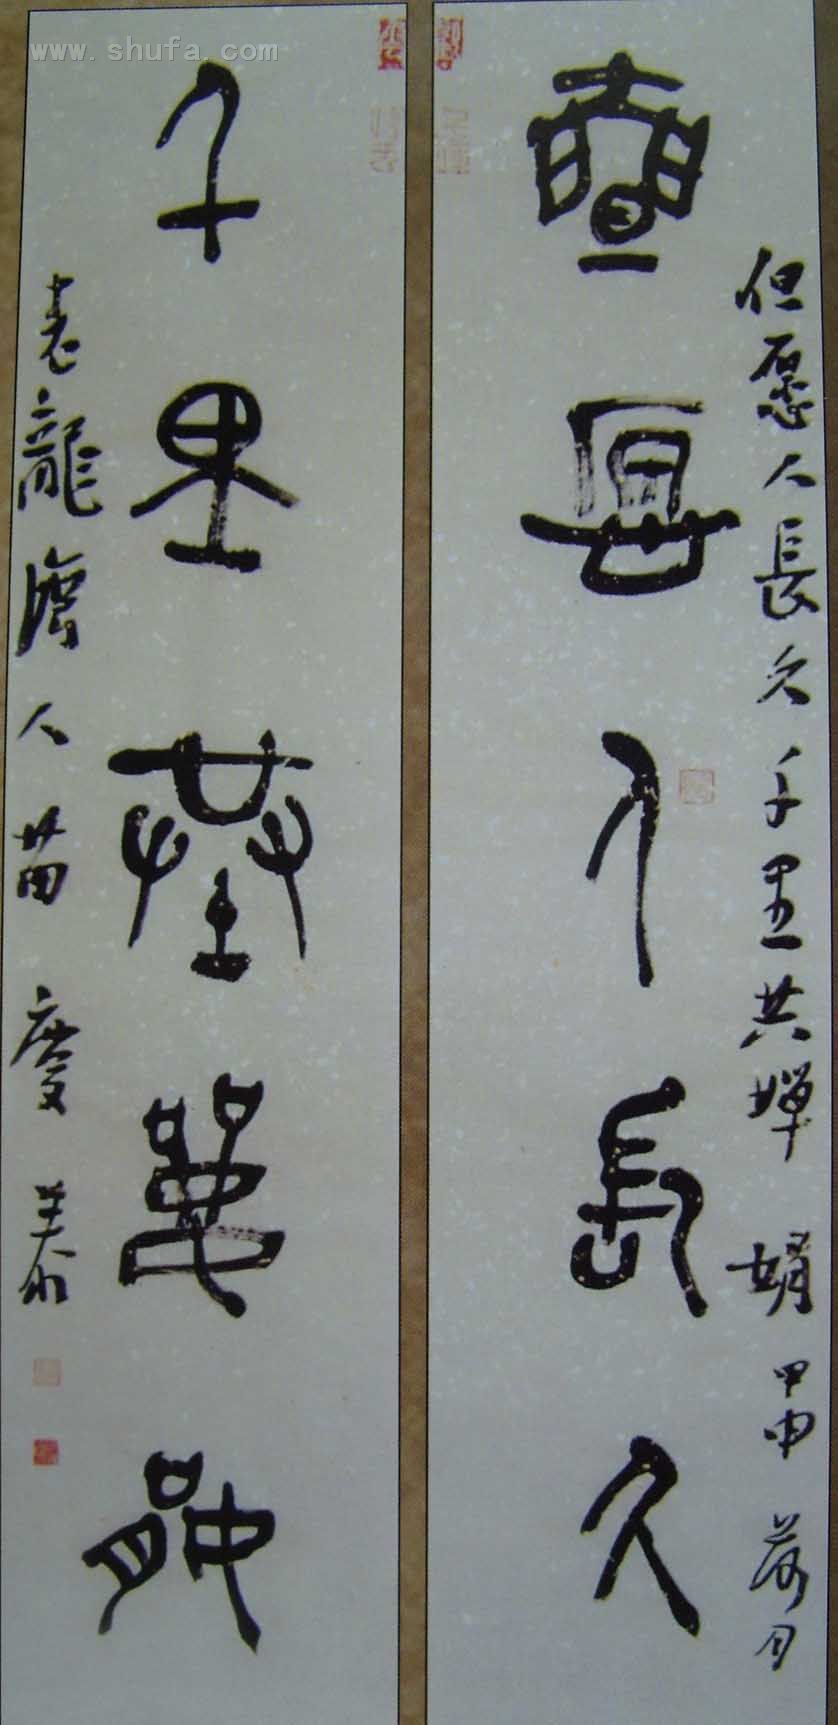 但愿人長久千里共婵娟甲申荷月
亶愿人長久
千里共單娟
老龍灣人苗慶泰
www.shufa.com